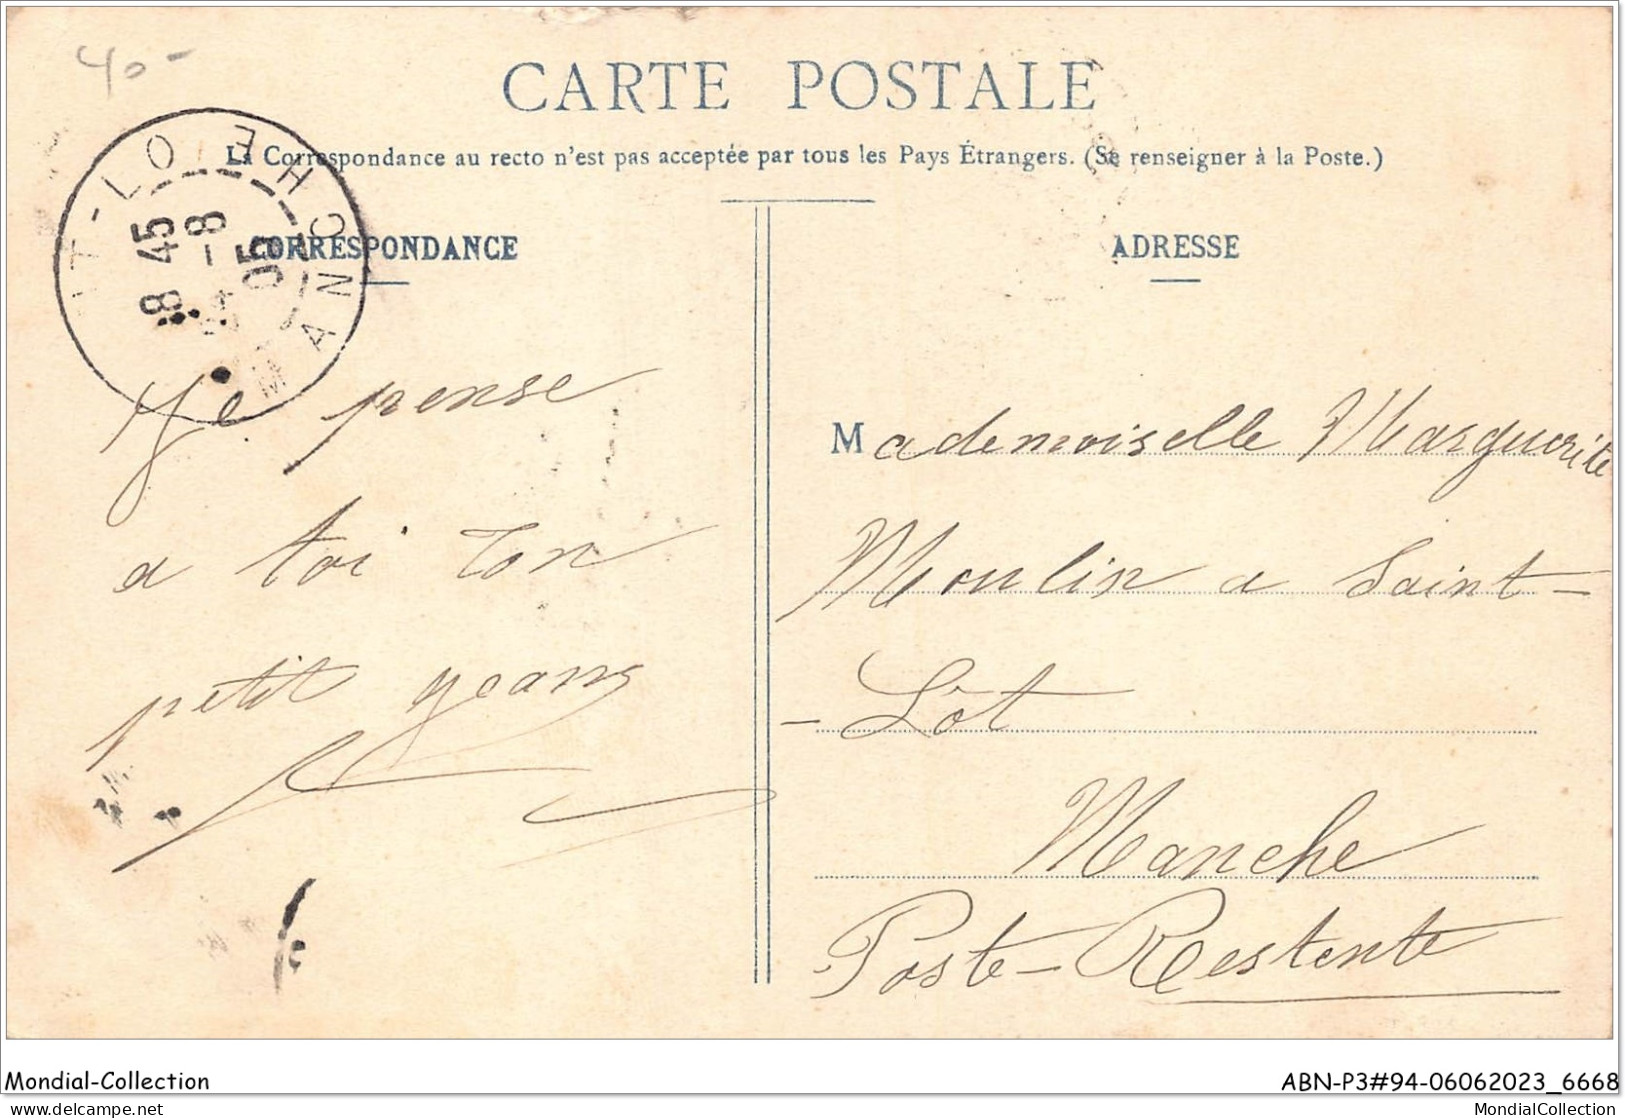 40-
CARTE POSTALE
La Correspondance au recto n'est pas acceptée par tous les Pays Étrangers. (Se renseigner à la Poste.)
CORRESPONDANCE
ADRESSE
ST-LO
MANCHE
8 45
-8
05
Je pense
a toi ton
petit jeans
Mademoiselle Marguerite
Moulin a Saint-
-Lôt
Manche
Poste-Restente
Mondial-Collection
ABN-P3#94-06062023_6668
delcampe.net
MondialCollection